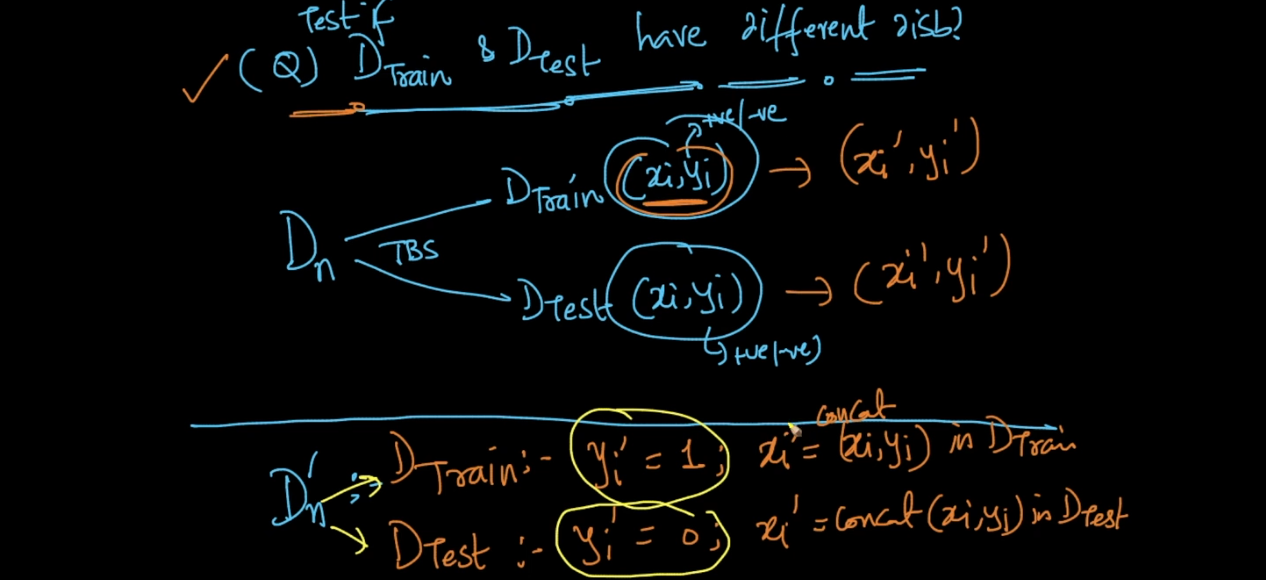 Test if
(Q) DTrain & DTest have different disb?
+ve/-ve
DTrain (xi,yi) → (xi',yi')
Dn
TBS
DTest (xi,yi) → (xi',yi')
+ve(-ve)
concat
Dn' DTrain :- yi' = 1; xi' = (xi,yi) in DTrain
DTest :- yi' = 0; xi' = concat(xi,yi) in DTest